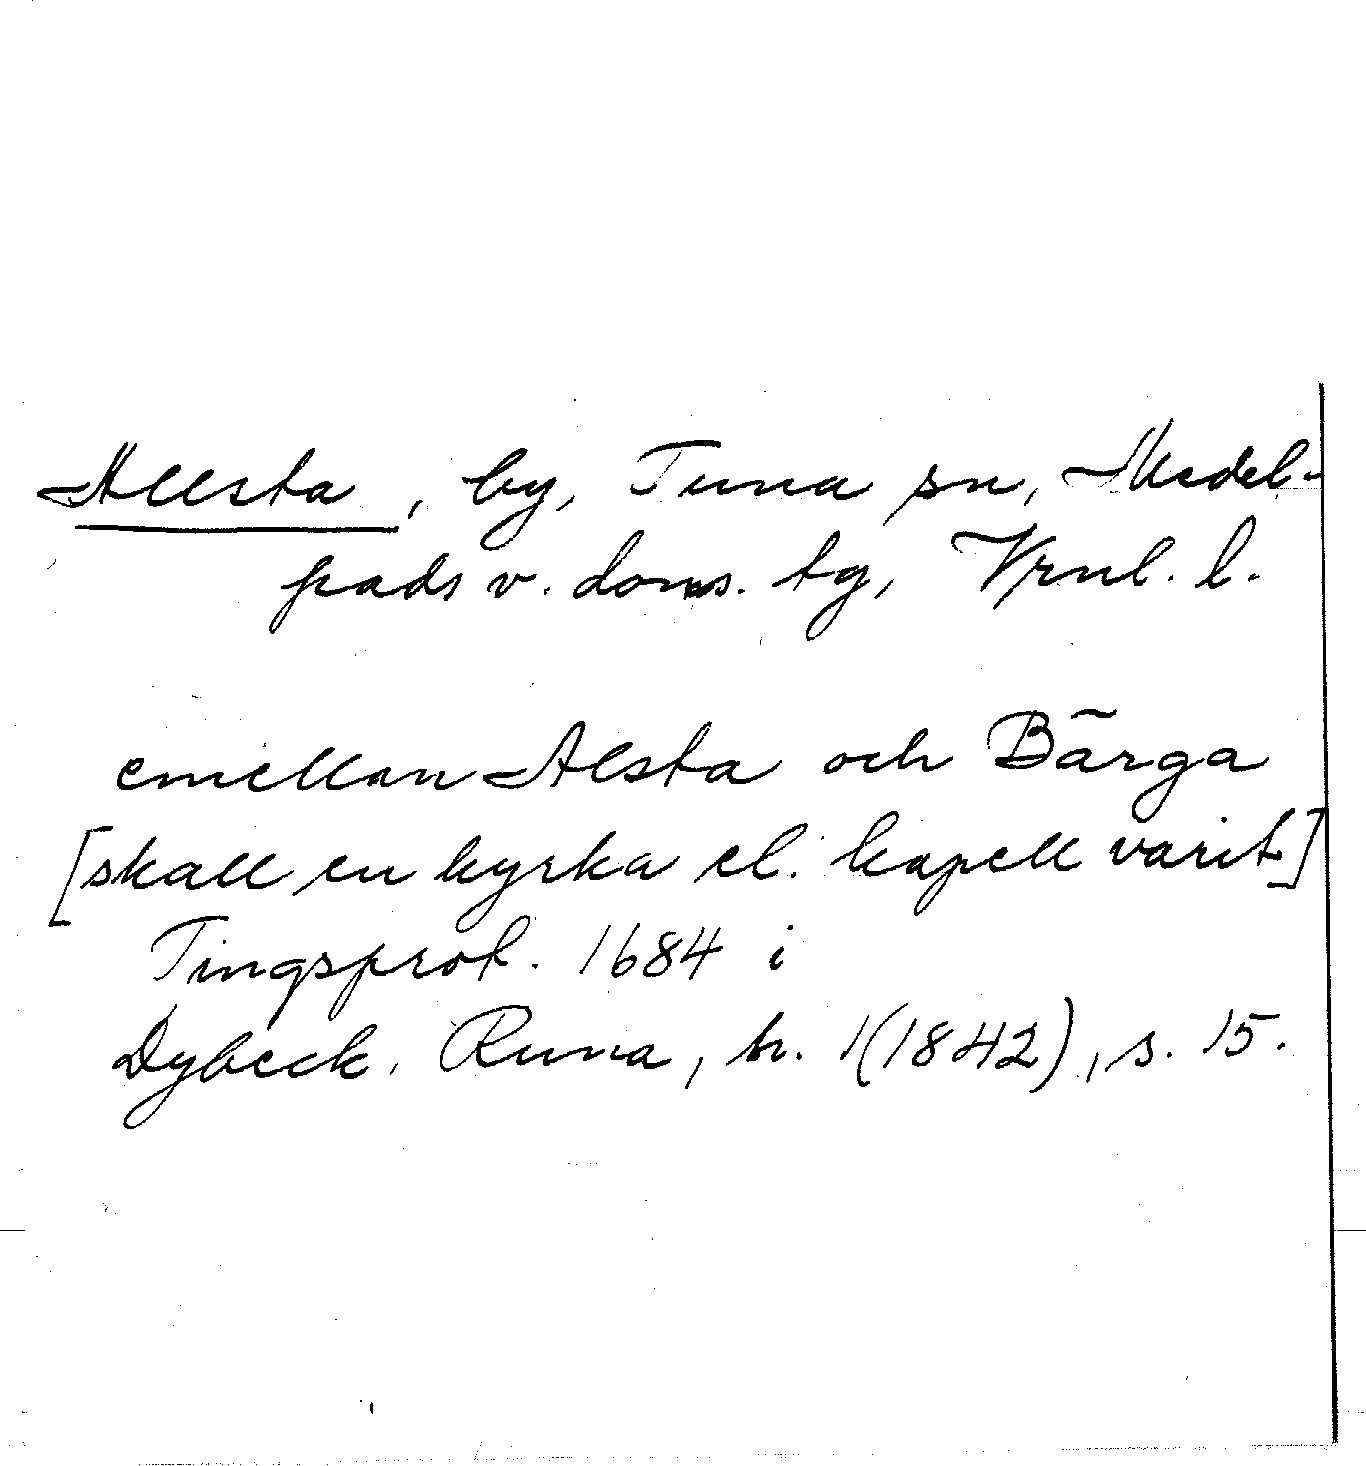 Allsta, by, Tuna sn, Medel-
pads v. doms. tg, Vrnl. l.
emellan Alsta och Bärga
[skall en kyrka el. kapell varit]
Tingsprot. 1684 i
Dybeck, Runa, h. 1(1842), s. 15.